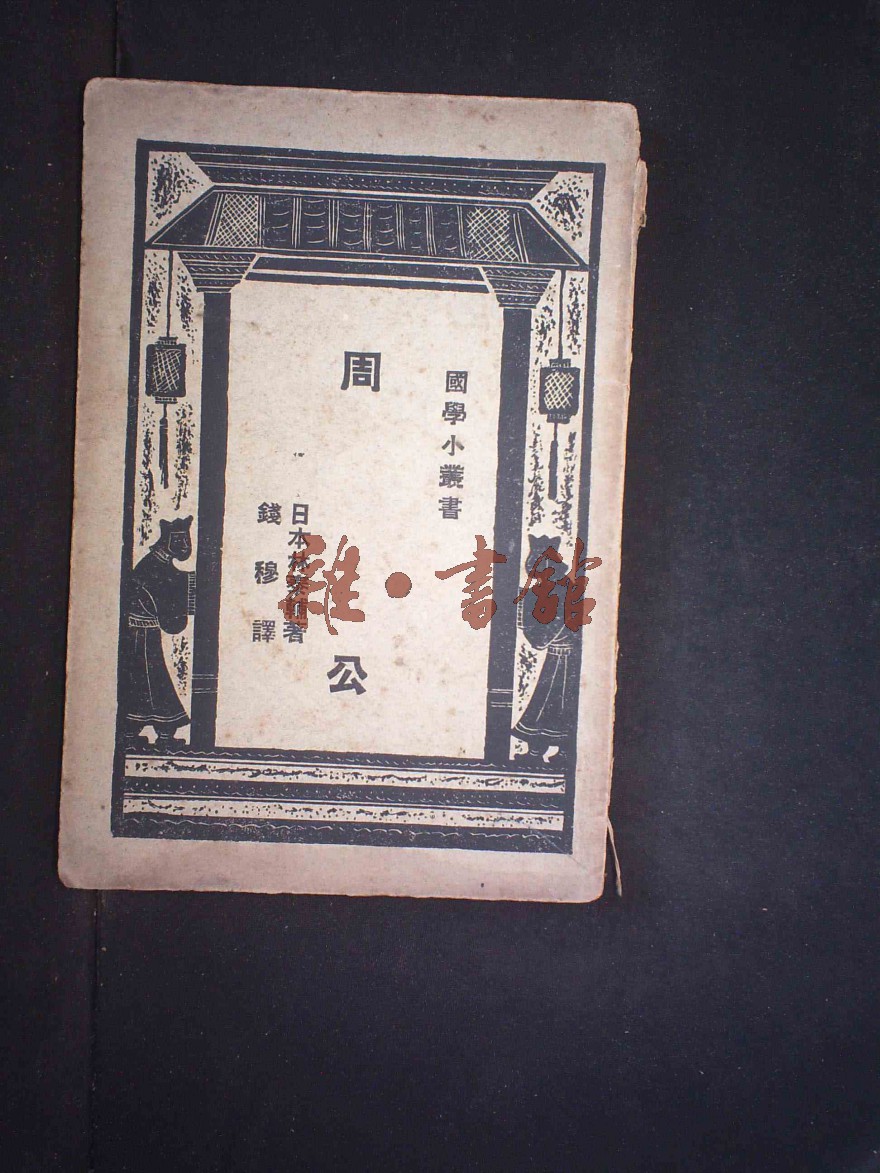 國學小叢書
周公
日本林泰輔著
錢穆譯
雜·書館